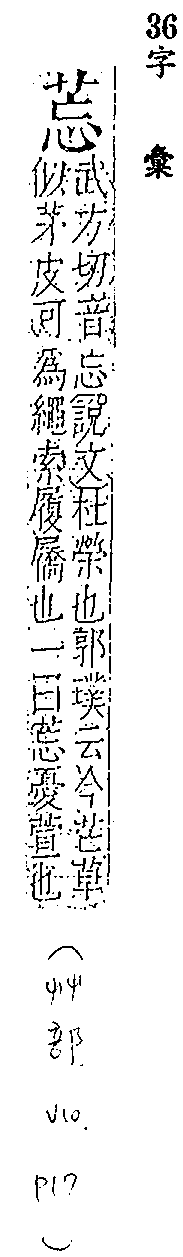 36字彙
荵武方切音忘說文杜榮也郭璞云今芒草
似茅皮可為繩索履屩也一曰荵憂萱也
(艸部 V10. P17)